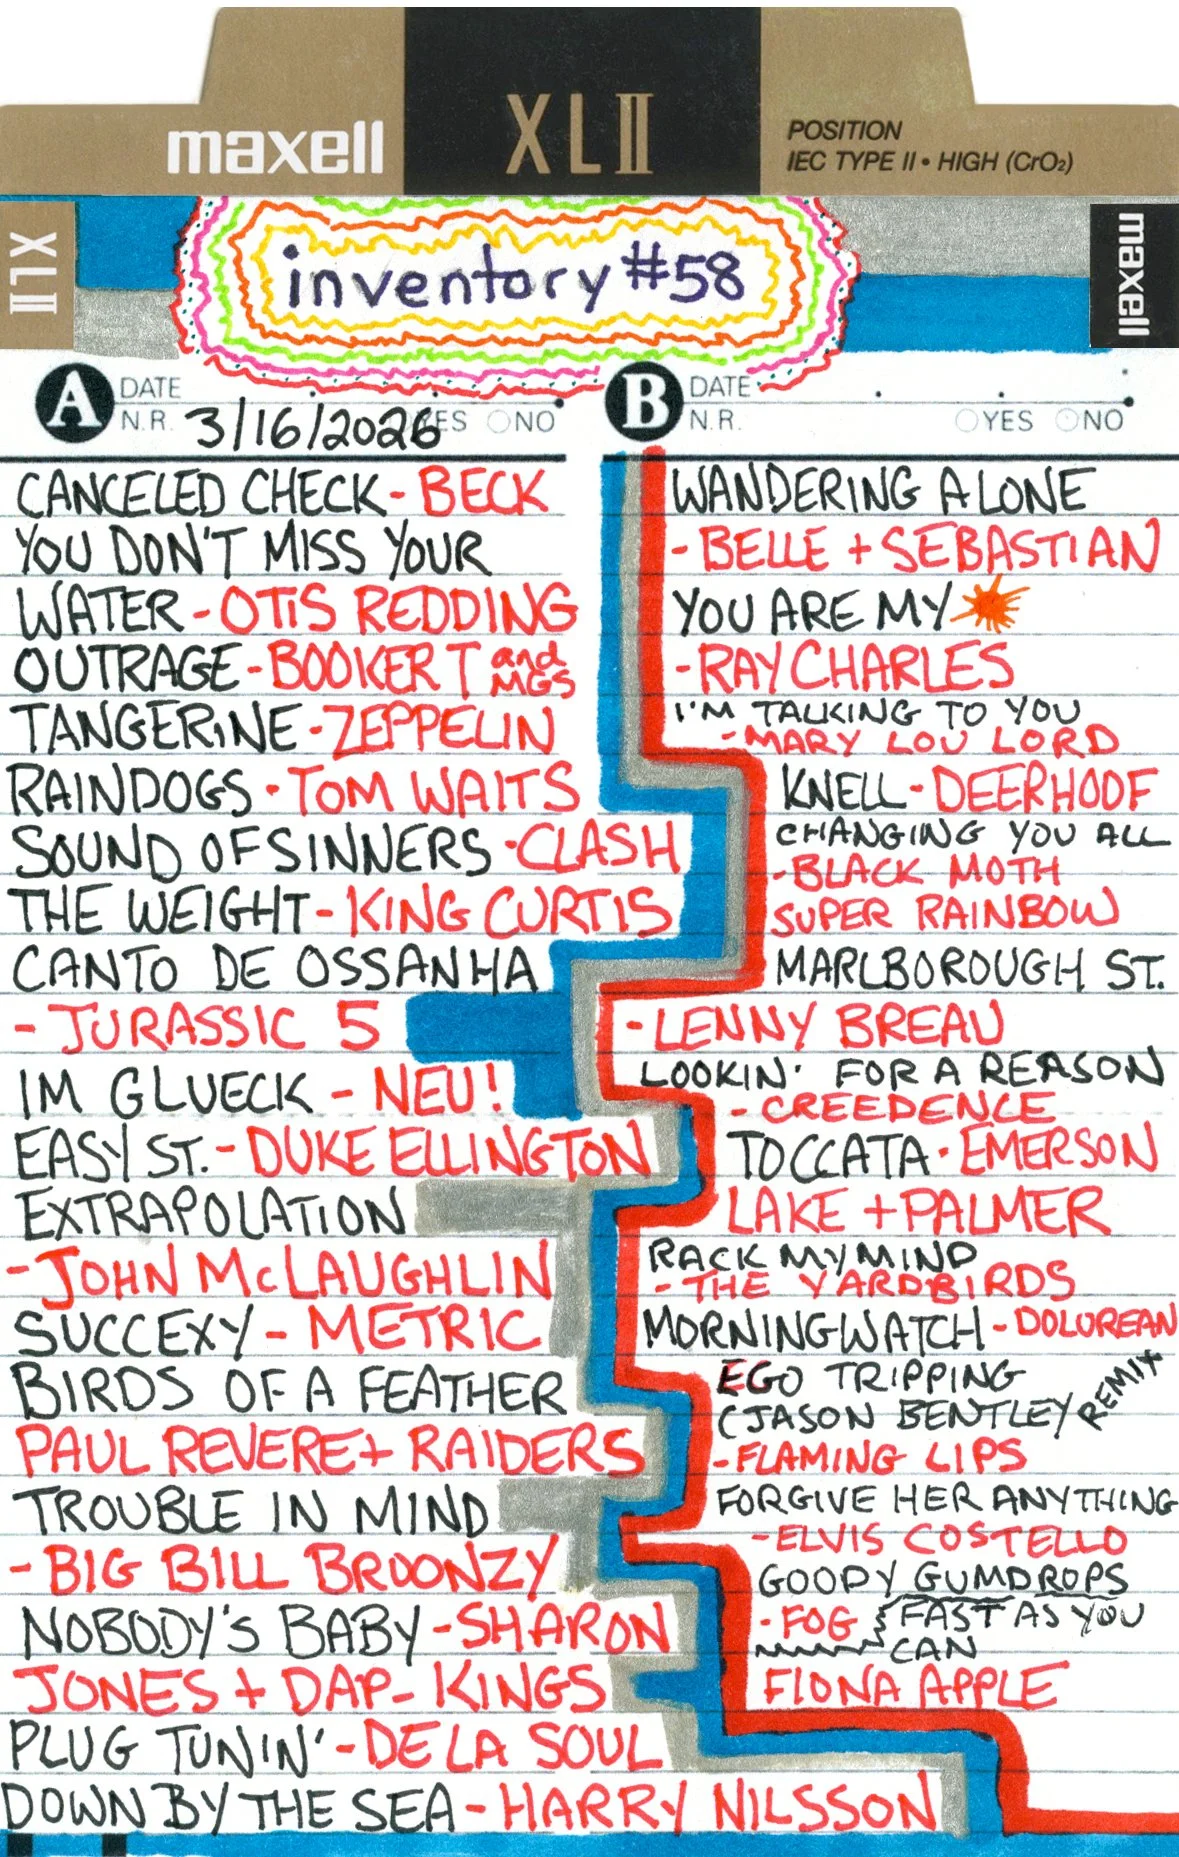 maxell
XLII
POSITION
IEC TYPE II • HIGH (CrO₂)
XLII
inventory #58
maxell
A DATE
N.R. 3/16/2026 YES NO
CANCELED CHECK - BECK
YOU DON'T MISS YOUR
WATER - OTIS REDDING
OUTRAGE - BOOKER T and MGS
TANGERINE - ZEPPELIN
RAINDOGS - TOM WAITS
SOUND OF SINNERS - CLASH
THE WEIGHT - KING CURTIS
CANTO DE OSSANHA
- JURASSIC 5
IM GLUECK - NEU!
EASY ST. - DUKE ELLINGTON
EXTRAPOLATION
- JOHN McLAUGHLIN
SUCCEXY - METRIC
BIRDS OF A FEATHER
PAUL REVERE + RAIDERS
TROUBLE IN MIND
- BIG BILL BROONZY
NOBODY'S BABY - SHARON
JONES + DAP-KINGS
PLUG TUNIN' - DE LA SOUL
DOWN BY THE SEA - HARRY NILSSON
B DATE
N.R. YES NO
WANDERING ALONE
- BELLE + SEBASTIAN
YOU ARE MY
- RAY CHARLES
I'M TALKING TO YOU
- MARY LOU LORD
KNELL - DEERHOOF
CHANGING YOU ALL
- BLACK MOTH
SUPER RAINBOW
MARLBOROUGH ST.
- LENNY BREAU
LOOKIN' FOR A REASON
- CREEDENCE
TOCCATA - EMERSON
LAKE + PALMER
RACK MY MIND
- THE YARDBIRDS
MORNINGWATCH - DOLOREAN
EGO TRIPPING
(JASON BENTLEY REMIX
- FLAMING LIPS
FORGIVE HER ANYTHING
- ELVIS COSTELLO
GOODY GUMDROPS
- FOG
FAST AS YOU
CAN
FIONA APPLE